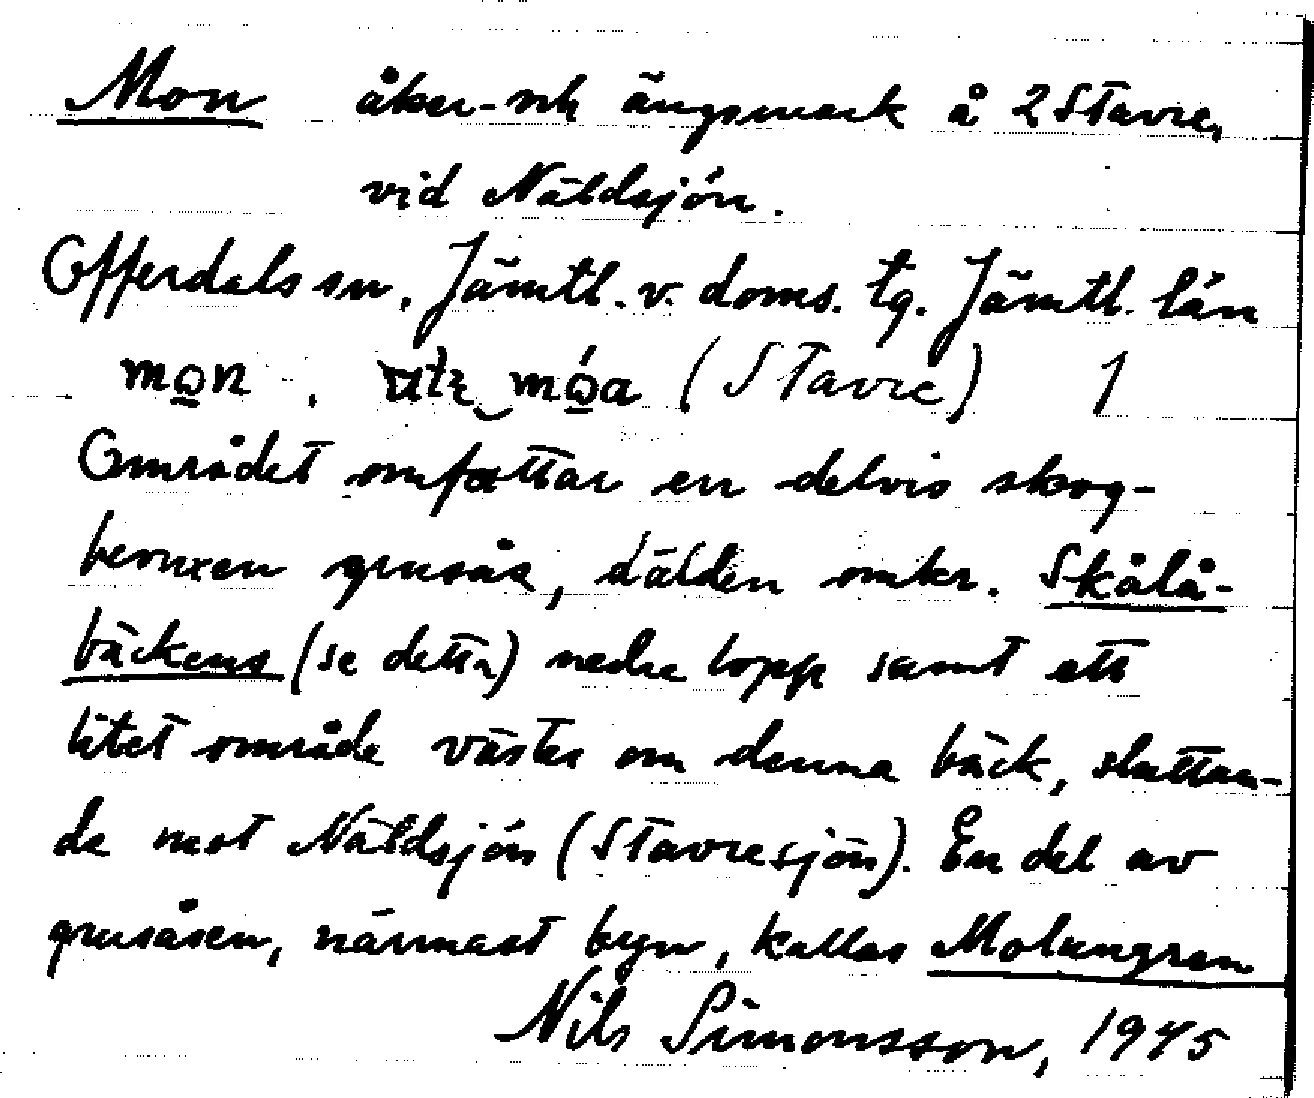 Mon åker- och ängsmark å 2 Stavre,
vid Näldsjön.
Offerdals sn, Jämtl. v. doms. tg. Jämtl. län
mo̲n, utɜ mó̲a (Stavre) 1
Området omfattar en delvis skog-
bevuxen grusås, dälden omkr. Skålå-
bäckens (se detta) nedre lopp samt ett
litet område väster om denna bäck, sluttan-
de mot Näldsjön (Stavresjön). En del av
grusåsen, närmast byn, kallas
Nils Simonsson, 1945